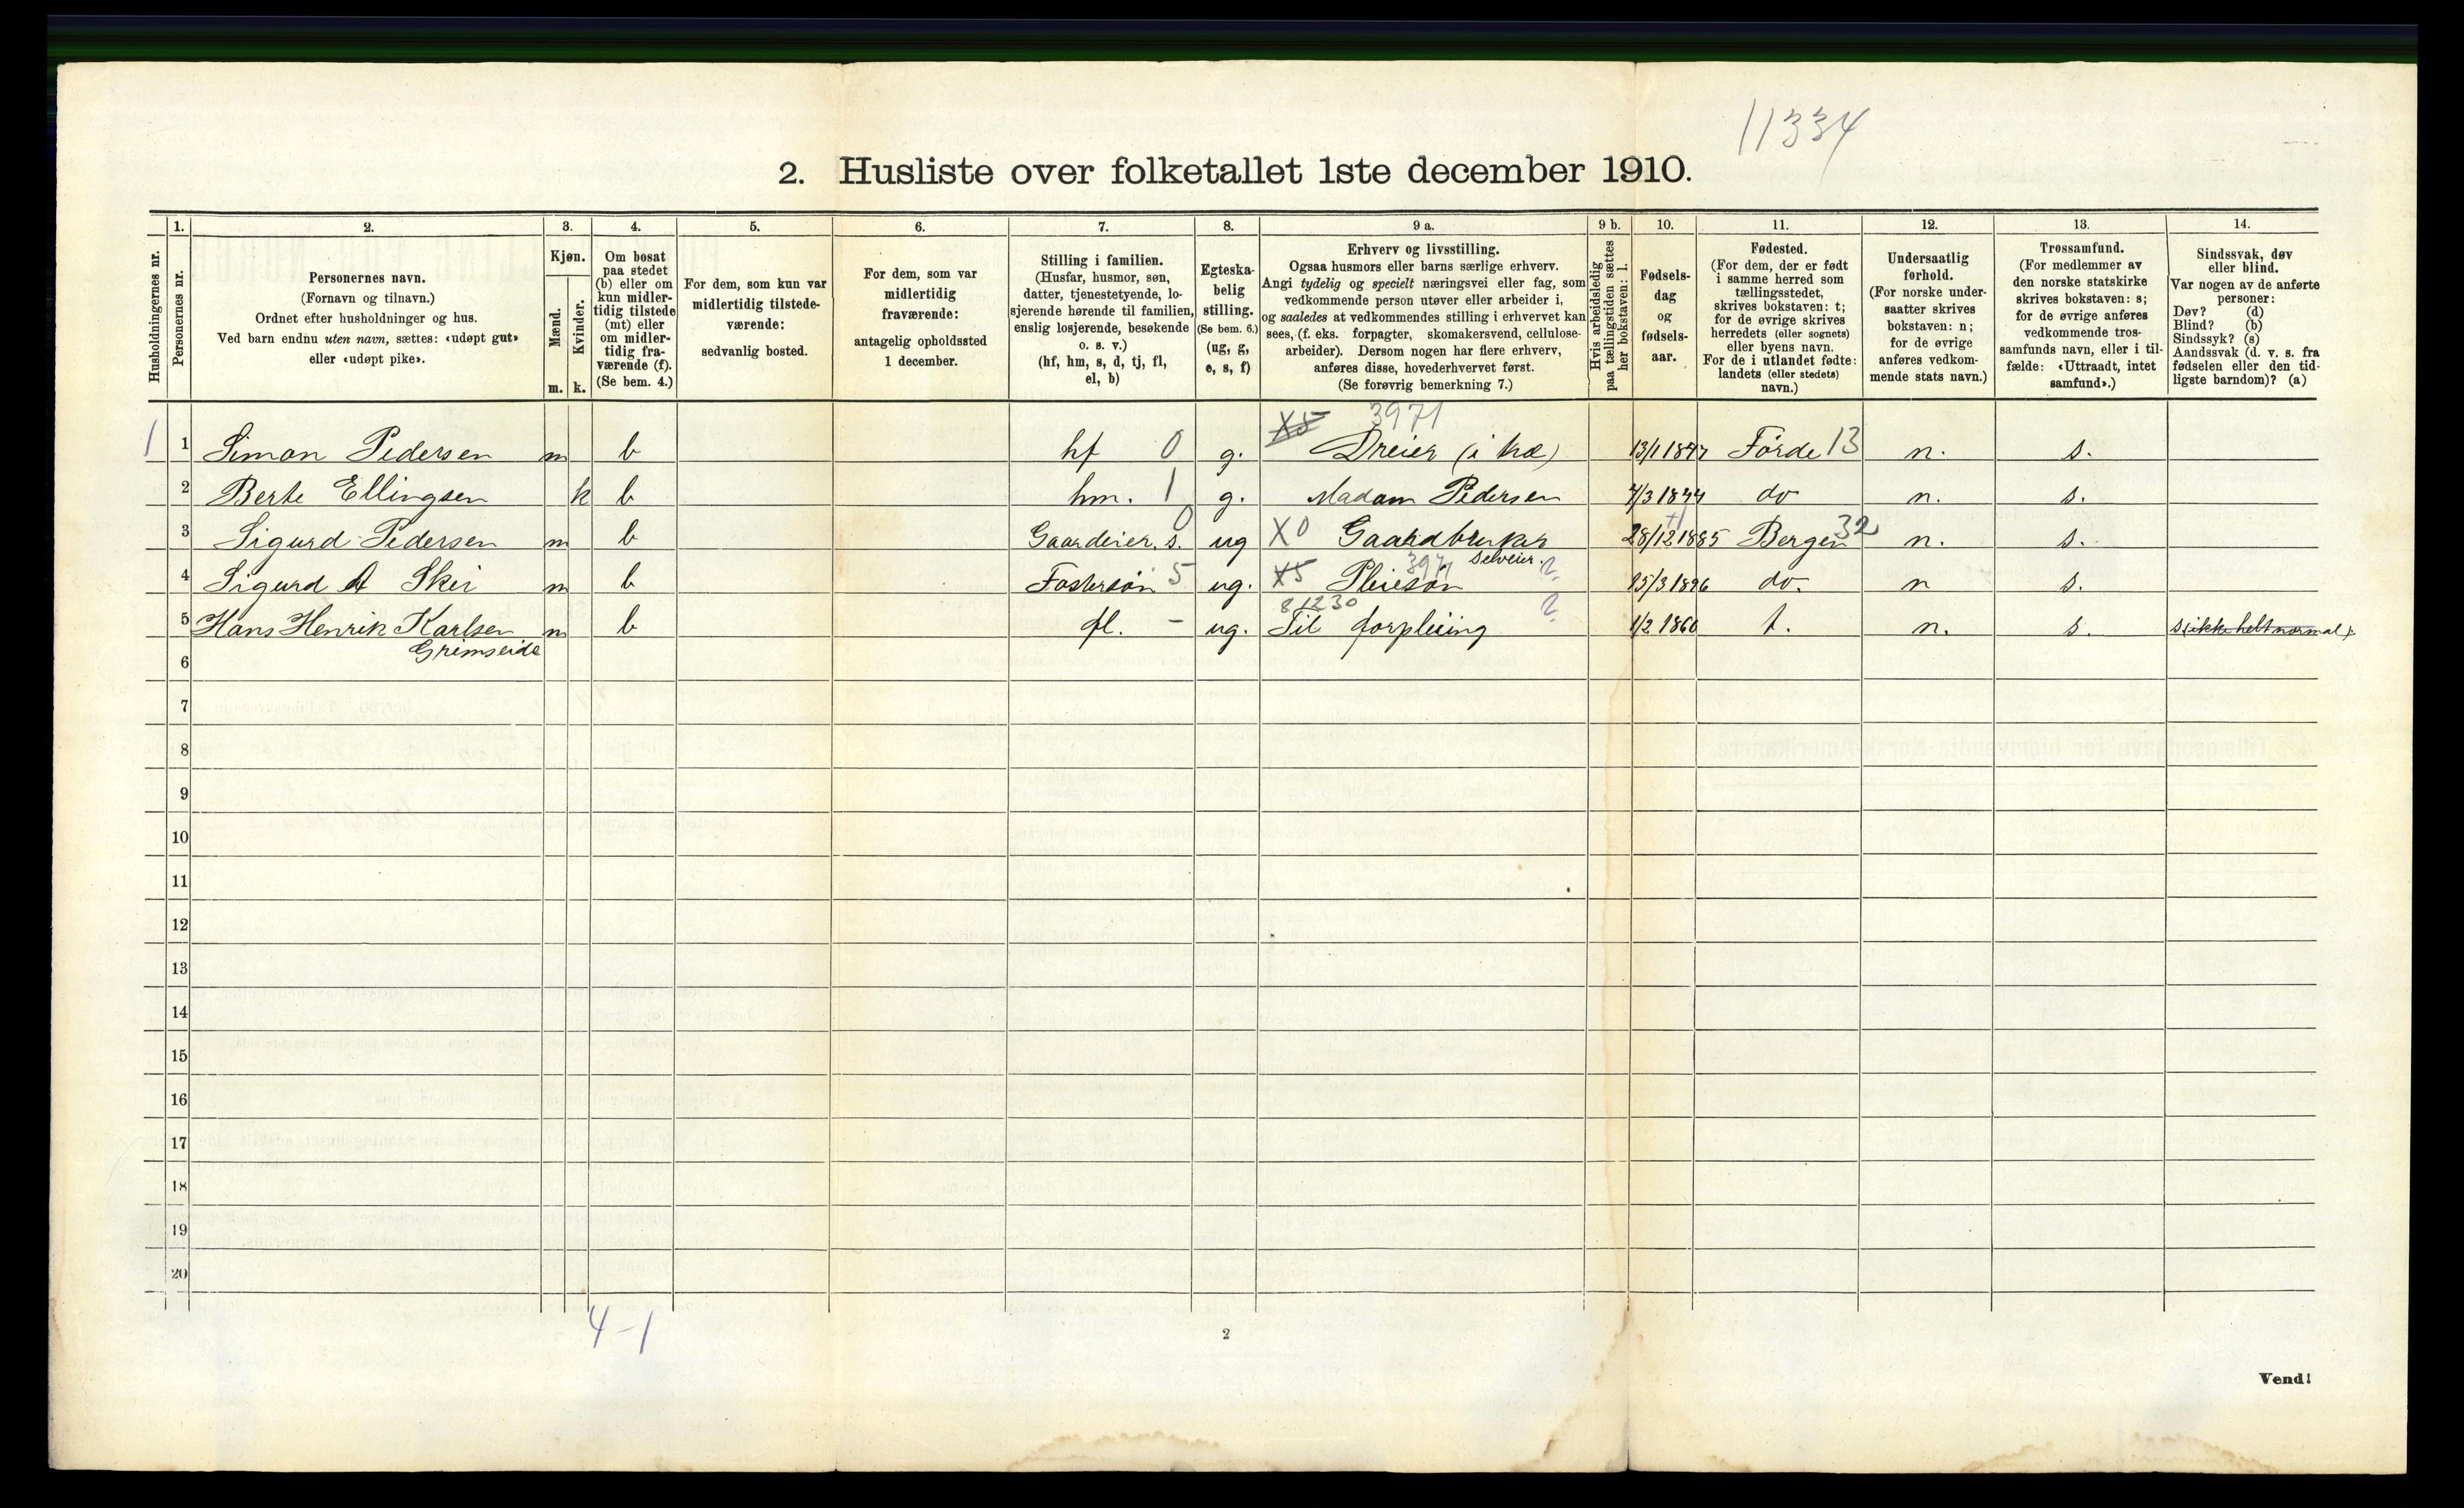 11334
2. Husliste over folketallet 1ste december 1910.
1. 2. 3. 4. 5. 6. 7. 8. 9 a. 9 b. 10. 11. 12. 13. 14.
Husholdningernes nr.
Personernes nr.
Personernes navn.
(Fornavn og tilnavn.)
Ordnet efter husholdninger og hus.
Ved barn endnu uten navn, sættes: «udøpt gut»
eller «udøpt pike».
Kjøn.
Mænd.
Kvinder.
m. k.
Om bosat
paa stedet
(b) eller om
kun midler-
tidig tilstede
(mt) eller
om midler-
tidig fra-
værende (f).
(Se bem. 4.)
For dem, som kun var
midlertidig tilstede-
værende:
sedvanlig bosted.
For dem, som var
midlertidig
fraværende:
antagelig opholdssted
1 december.
Stilling i familien.
(Husfar, husmor, søn,
datter, tjenestetyende, lo-
sjerende hørende til familien,
enslig losjerende, besøkende
o. s. v.)
(hf, hm, s, d, tj, fl,
el, b)
Egteska-
belig
stilling.
(Se bem. 6.)
(ug, g,
e, s, f)
Erhverv og livsstilling.
Ogsaa husmors eller barns særlige erhverv.
Angi tydelig og specielt næringsvei eller fag, som
vedkommende person utøver eller arbeider i,
og saaledes at vedkommendes stilling i erhvervet kan
sees, (f. eks. forpagter, skomakersvend, cellulose-
arbeider). Dersom nogen har flere erhverv,
anføres disse, hovederhvervet først.
(Se forøvrig bemerkning 7.)
Hvis arbeidsledig
paa tællingstiden sættes
her bokstaven: l.
Fødsels-
dag
og
fødsels-
aar.
Fødested.
(For dem, der er født
i samme herred som
tællingsstedet,
skrives bokstaven: t;
for de øvrige skrives
herredets (eller sognets)
eller byens navn.
For de i utlandet fødte:
landets (eller stedets)
navn.)
Undersaatlig
forhold.
(For norske under-
saatter skrives
bokstaven: n;
for de øvrige
anføres vedkom-
mende stats navn.)
Trossamfund.
(For medlemmer av
den norske statskirke
skrives bokstaven: s;
for de øvrige anføres
vedkommende tros-
samfunds navn, eller i til-
fælde: «Uttraadt, intet
samfund».)
Sindssvak, døv
eller blind.
Var nogen av de anførte
personer:
Døv? (d)
Blind? (b)
Sindssyk? (s)
Aandssvak (d. v. s. fra
fødselen eller den tid-
ligste barndom)? (a)
X5 3971
1 1 Simon Pedersen m b hf 0 g. Dreier (i træ) 13/1 Førde 13 n. s.
2 Berte Ellingsen k b hm. 1 g. Madam Pedersen 7/3 1844 do n. s.
3 Sigurd Pedersen m b Gaardeier. s. 0 ug X0 Gaardbruker selveier. 28/12 1885 Bergen 32 n. s.
4 Sigurd A Skei m b Fostersøn 5 ug. X5 Pleiesøn 3971 ? 15/3 1896 do. n s.
5 Hans Henrik Karlsen m b fl. - ug. Til forpleiing 81230 ? 1/2 1860 t. n. s. s (ikke helt normal).
Grimseide
6
7
8
9
10
11
12
13
14
15
16
17
18
19
20
4-1
2
Vend!